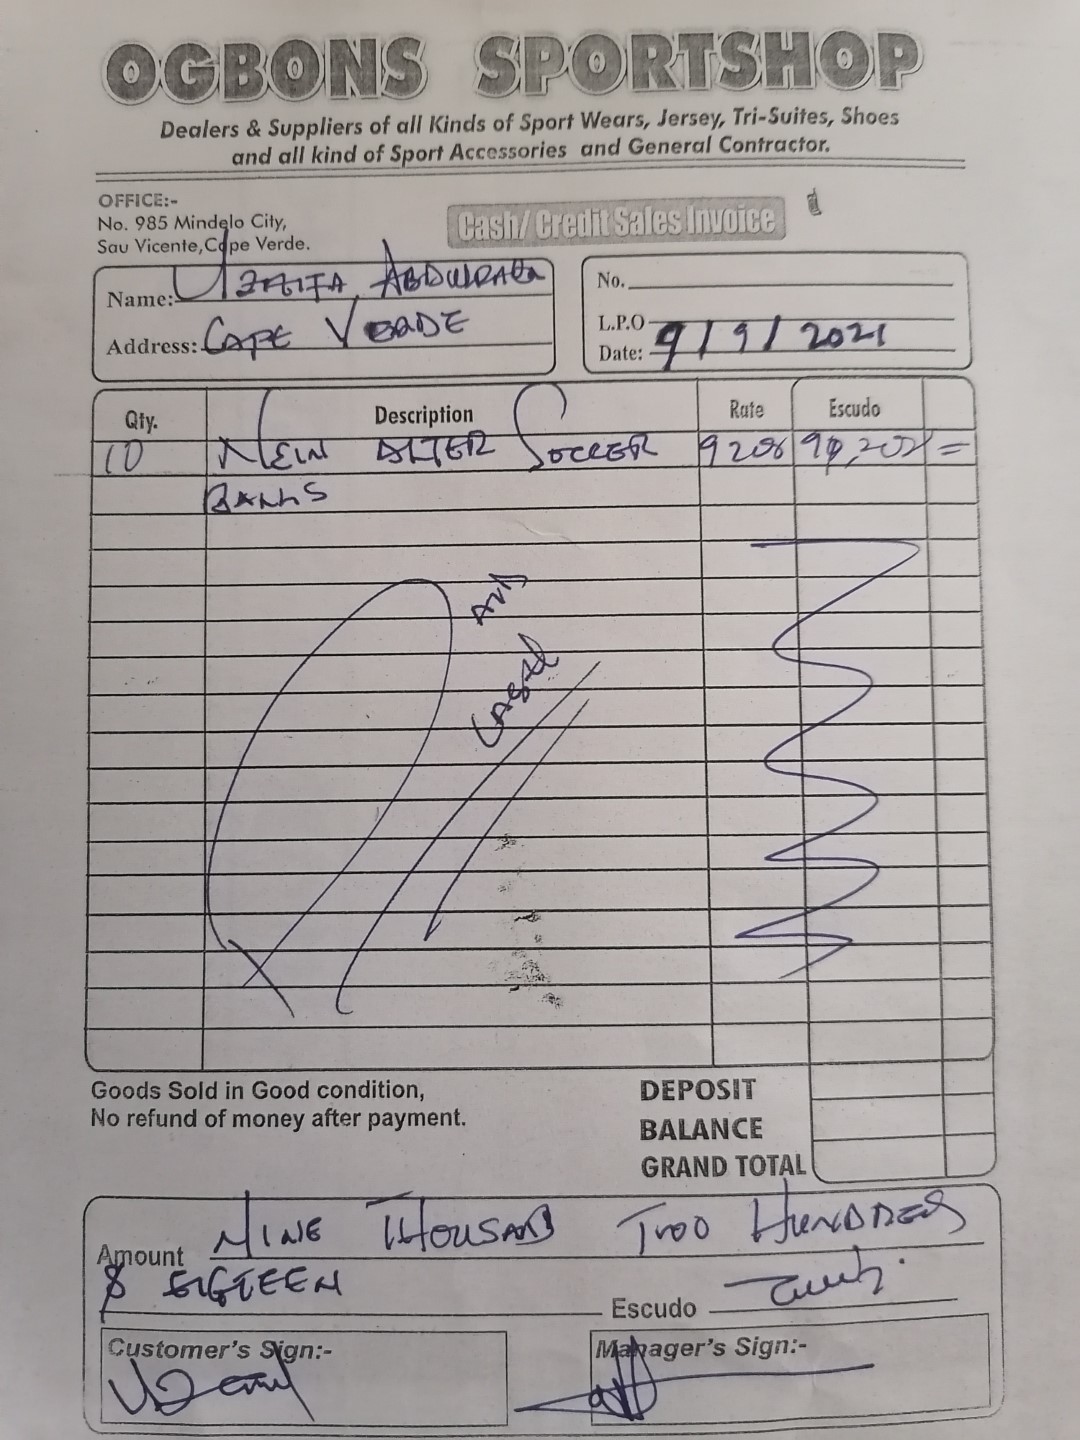 OGBONS SPORTSHOP
Dealers & Suppliers of all Kinds of Sport Wears, Jersey, Tri-Suites, Shoes
and all kind of Sport Accessories and General Contractor.
OFFICE:-
No. 985 Mindelo City,
Sau Vicente, Cape Verde.
Cash/ Credit Sales Invoice
Name:
Address: CAPE VERDE
No.
L.P.O
Date: 9/9/2021
Qty. Description Rate Escudo
10 SOCCER
BALLS
AND
Goods Sold in Good condition,
No refund of money after payment.
DEPOSIT
BALANCE
GRAND TOTAL
Amount NINE THOUSAND TWO HUNDRED
& EIGTEEN
Escudo
Customer's Sign:-
Manager's Sign:-